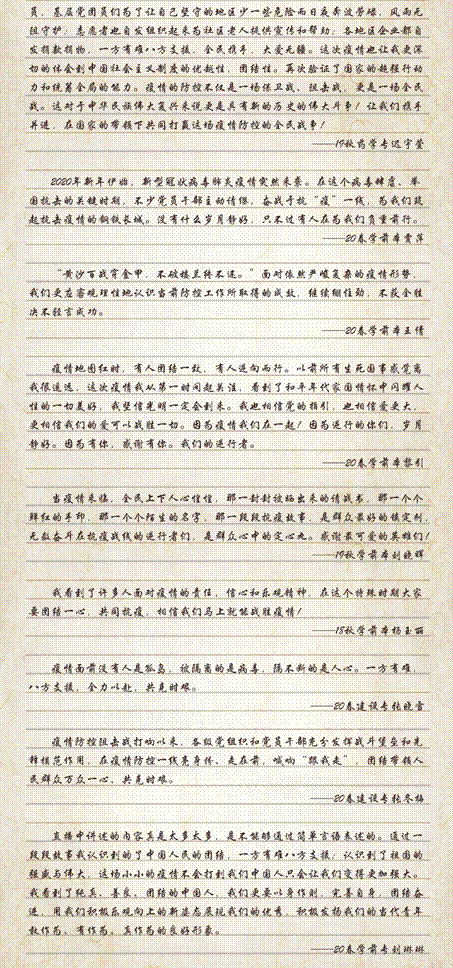 员，基层党团员们为了让自己坚守的地区少一些危险而日夜奔波劳碌，风雨无
阻守护；志愿者也自发组织起来为社区老人提供宣传和帮助；各地区企业都自
发捐款捐物，一方有难八方支援，全民携手，大爱无疆。这次疫情也让我更深
切的体会到中国社会主义制度的优越性，团结性。再次验证了国家的超强行动
力和统筹全局的能力。疫情的防控不仅是一场保卫战、阻击战，更是一场全民
战。这对于中华民族伟大复兴来说更是具有新的历史的伟大斗争！让我们携手
并进，在国家的带领下共同打赢这场疫情防控的全民战争！
——19秋药学专迟宇萱
2020年新年伊始，新型冠状病毒肺炎疫情突然来袭。在这个病毒肆虐、举
国抗击的关键时期，不少党员干部主动请缨，奋战于抗“疫”一线，为我们筑
起抗击疫情的钢铁长城。没有什么岁月静好，只不过有人在为我们负重前行。
——20春学前本贾萍
“黄沙百战穿金甲，不破楼兰终不还。”面对依然严峻复杂的疫情形势，
我们更应客观理性地认识当前防控工作所取得的成效，继续绷住劲，不获全胜
决不轻言成功。
——20春学前本王倩
疫情地图红时，有人团结一致，有人逆向而行。以前所有生死国事感觉离
我很遥远，这次疫情我从第一时间起关注，看到了和平年代家国情怀中闪耀人
性的一切美好，我坚信光明一定会到来。我也相信党的指引，也相信爱更大，
更相信我们的爱可以战胜一切。因为疫情我们在一起！因为逆行的你们，岁月
静好。因为有你，感谢有你。我们的逆行者。
——20春学前本黎引
当疫情来临，全民上下人心惶惶，那一封封被晒出来的请战书，那一个个
鲜红的手印，那一个个陌生的名字，那一段段抗疫故事，是群众最好的镇定剂，
无数奋斗在抗疫战线的逆行者们，是群众心中的定心丸。感谢最可爱的英雄们！
——19秋学前本刘晓晖
我看到了许多人面对疫情的责任，信心和乐观精神，在这个特殊时期大家
要团结一心，共同抗疫，相信我们马上就能战胜疫情！
——18秋学前本杨玉丽
疫情面前没有人是孤岛，被隔离的是病毒，隔不断的是人心。一方有难，
八方支援，全力以赴，共克时艰。
——20春建设专张晓雪
疫情防控阻击战打响以来，各级党组织和党员干部充分发挥战斗堡垒和先
锋模范作用，在疫情防控一线亮身份、走在前，喊响“跟我走”，团结带领人
民群众万众一心、共克时艰。
——20春建设专张冬梅
直播中讲述的内容真是太多太多，是不能够通过简单言语表述的。通过一
段段故事我认识到的了中国人民的团结，一方有难八方支援；认识到了祖国的
强盛与伟大，这场小小的疫情不会打到我们中国人只会让我们变得更加强大。
我看到了纯真、善良、团结的中国人，我们更要以身作则，完善自身，团结奋
进，用我们积极乐观向上的新姿态展现我们的优秀，积极发扬我们的当代青年
敢作为、有作为、真作为的良好形象。
——20春学前专刘琳琳